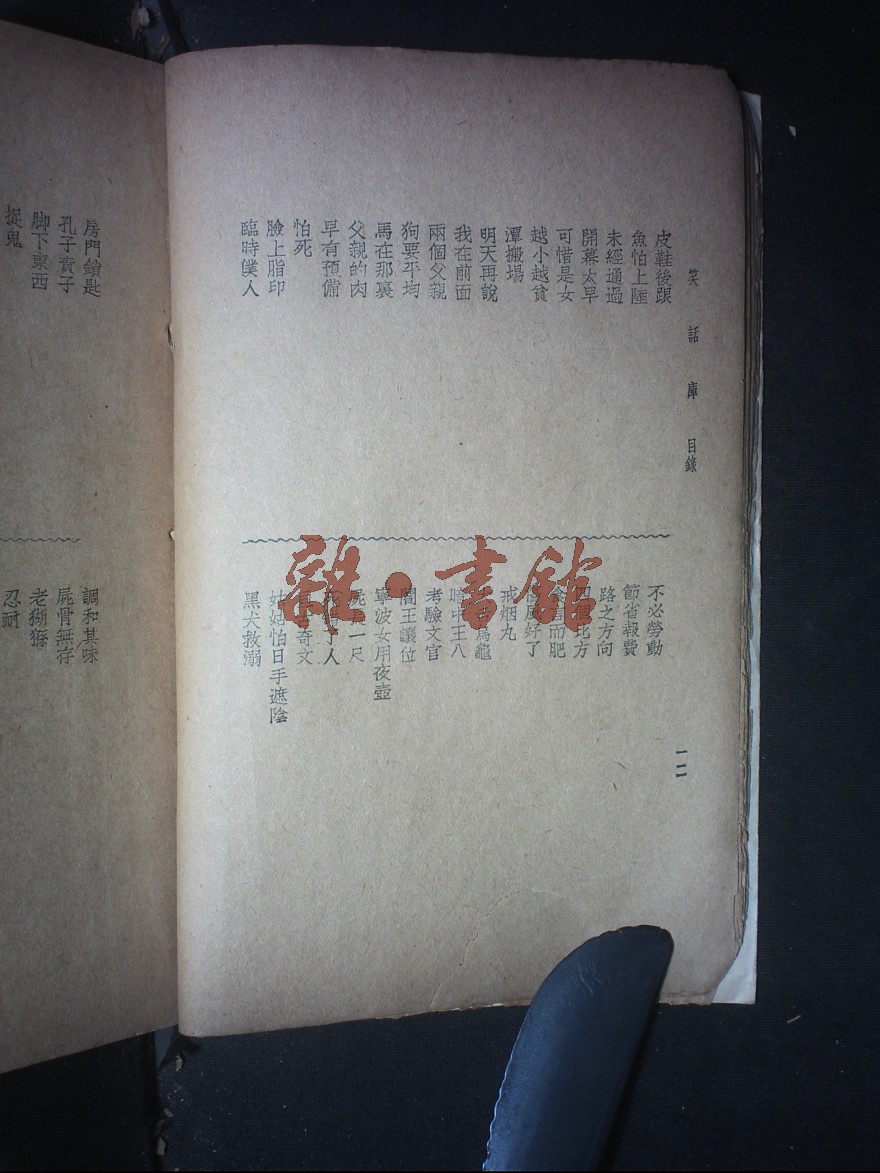 笑話庫 目錄
皮鞋後跟
魚怕上陸
未經通過
開幕太早
可惜是女
越小越貧
潭搬場
明天再說
我在前面
兩個父親
狗要平均
馬在那裏
父親的肉
早有預備
怕死
臉上脂印
臨時僕人
不必勞動
節省報費
路之方向
四個北方
而肥
風好了
戒烟丸
為龜
中王八
考驗文官
閻王讓位
寧波女用夜壺
一尺
人
奇文
姑娘怕日手遮陰
黑犬救溺
一二
房門鎖匙
孔子責子
脚下東西
捉鬼
調和其味
屍骨無存
老猢猻
忍耐
雜·書館